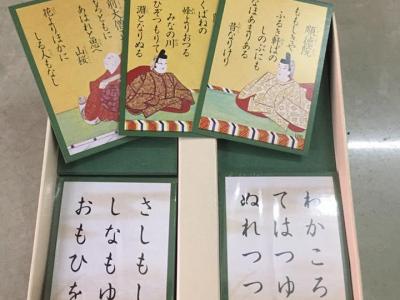 順徳院
ももしきや
ふるき軒ばの
しのぶにも
なほあまりある
昔なりけり
くばねの
峰よりおつる
みなの川
ひぞつもりて
淵となりぬる
あはれと思へ
山桜
花よりほかに
しる人もなし
わかころ
てはつゆ
ぬれつつ
さしもし
しなもゆ
おもひを